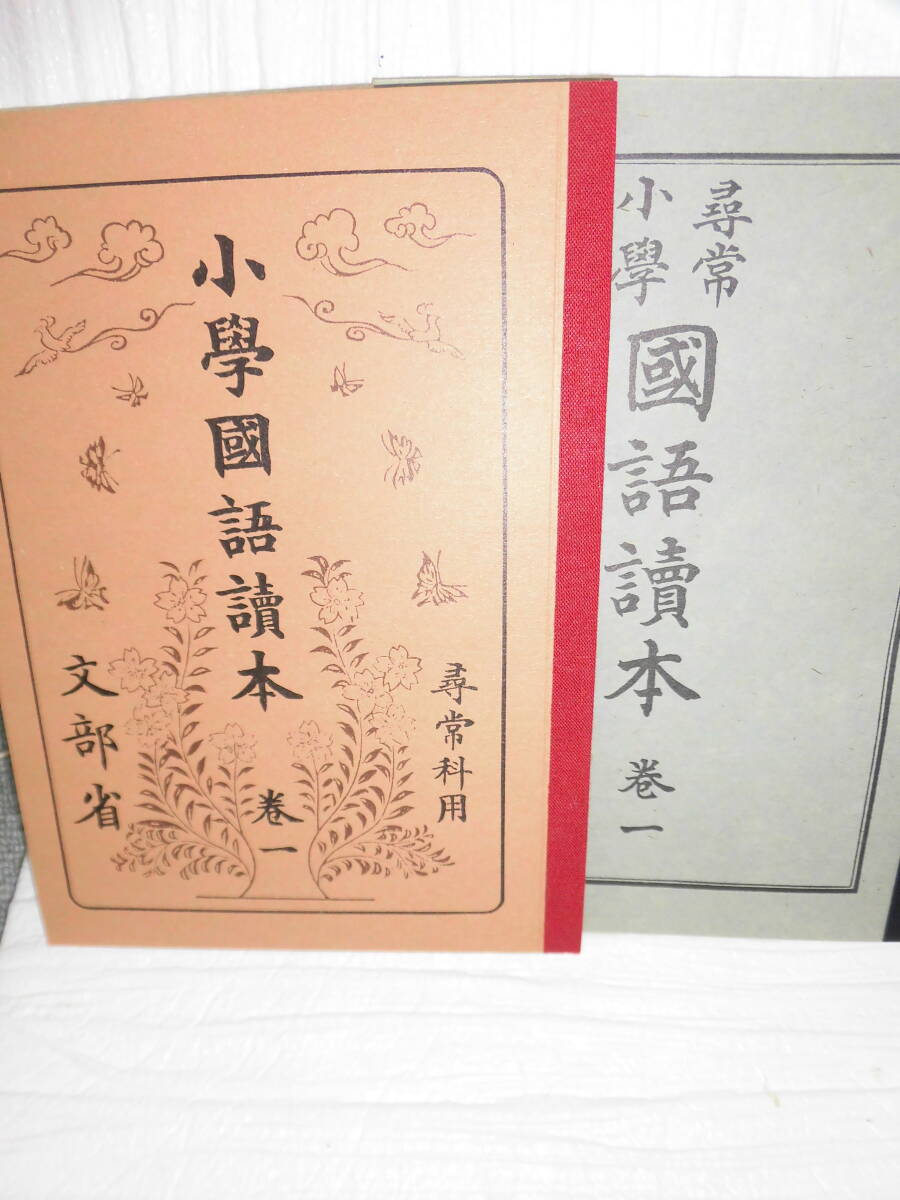 小學國語讀本
卷一
尋常科用
文部省
尋常
小學
國語讀本
卷一